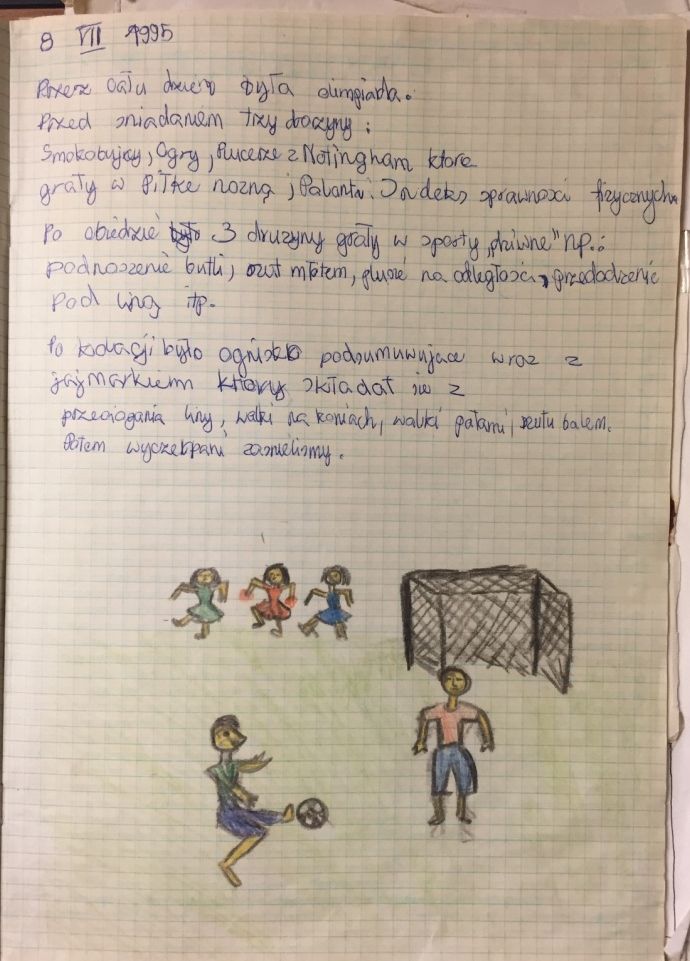 8 VII 1995
Przez cału dzień była olimpiada.
Przed śniadaniem trzy drużyny:
Smokobujcy, Ogry, z Notingham które
grały w Piłke nożną, Palanta. Indeks sprawności fizycznych
Po obiedzie było 3 drużyny grały w sporty „dziwne" np.:
podnoszenie butli, rzut młotem, plucie na odległość, przechodzenie
pod liną itp.
Po kolacji było ognisko podsumuwujące wraz z
jajmarkiem który składał sie z
przeciągania liny, walki na koniach, walki pałami, rzutu balem.
Potem wyczerpani zasneliśmy.